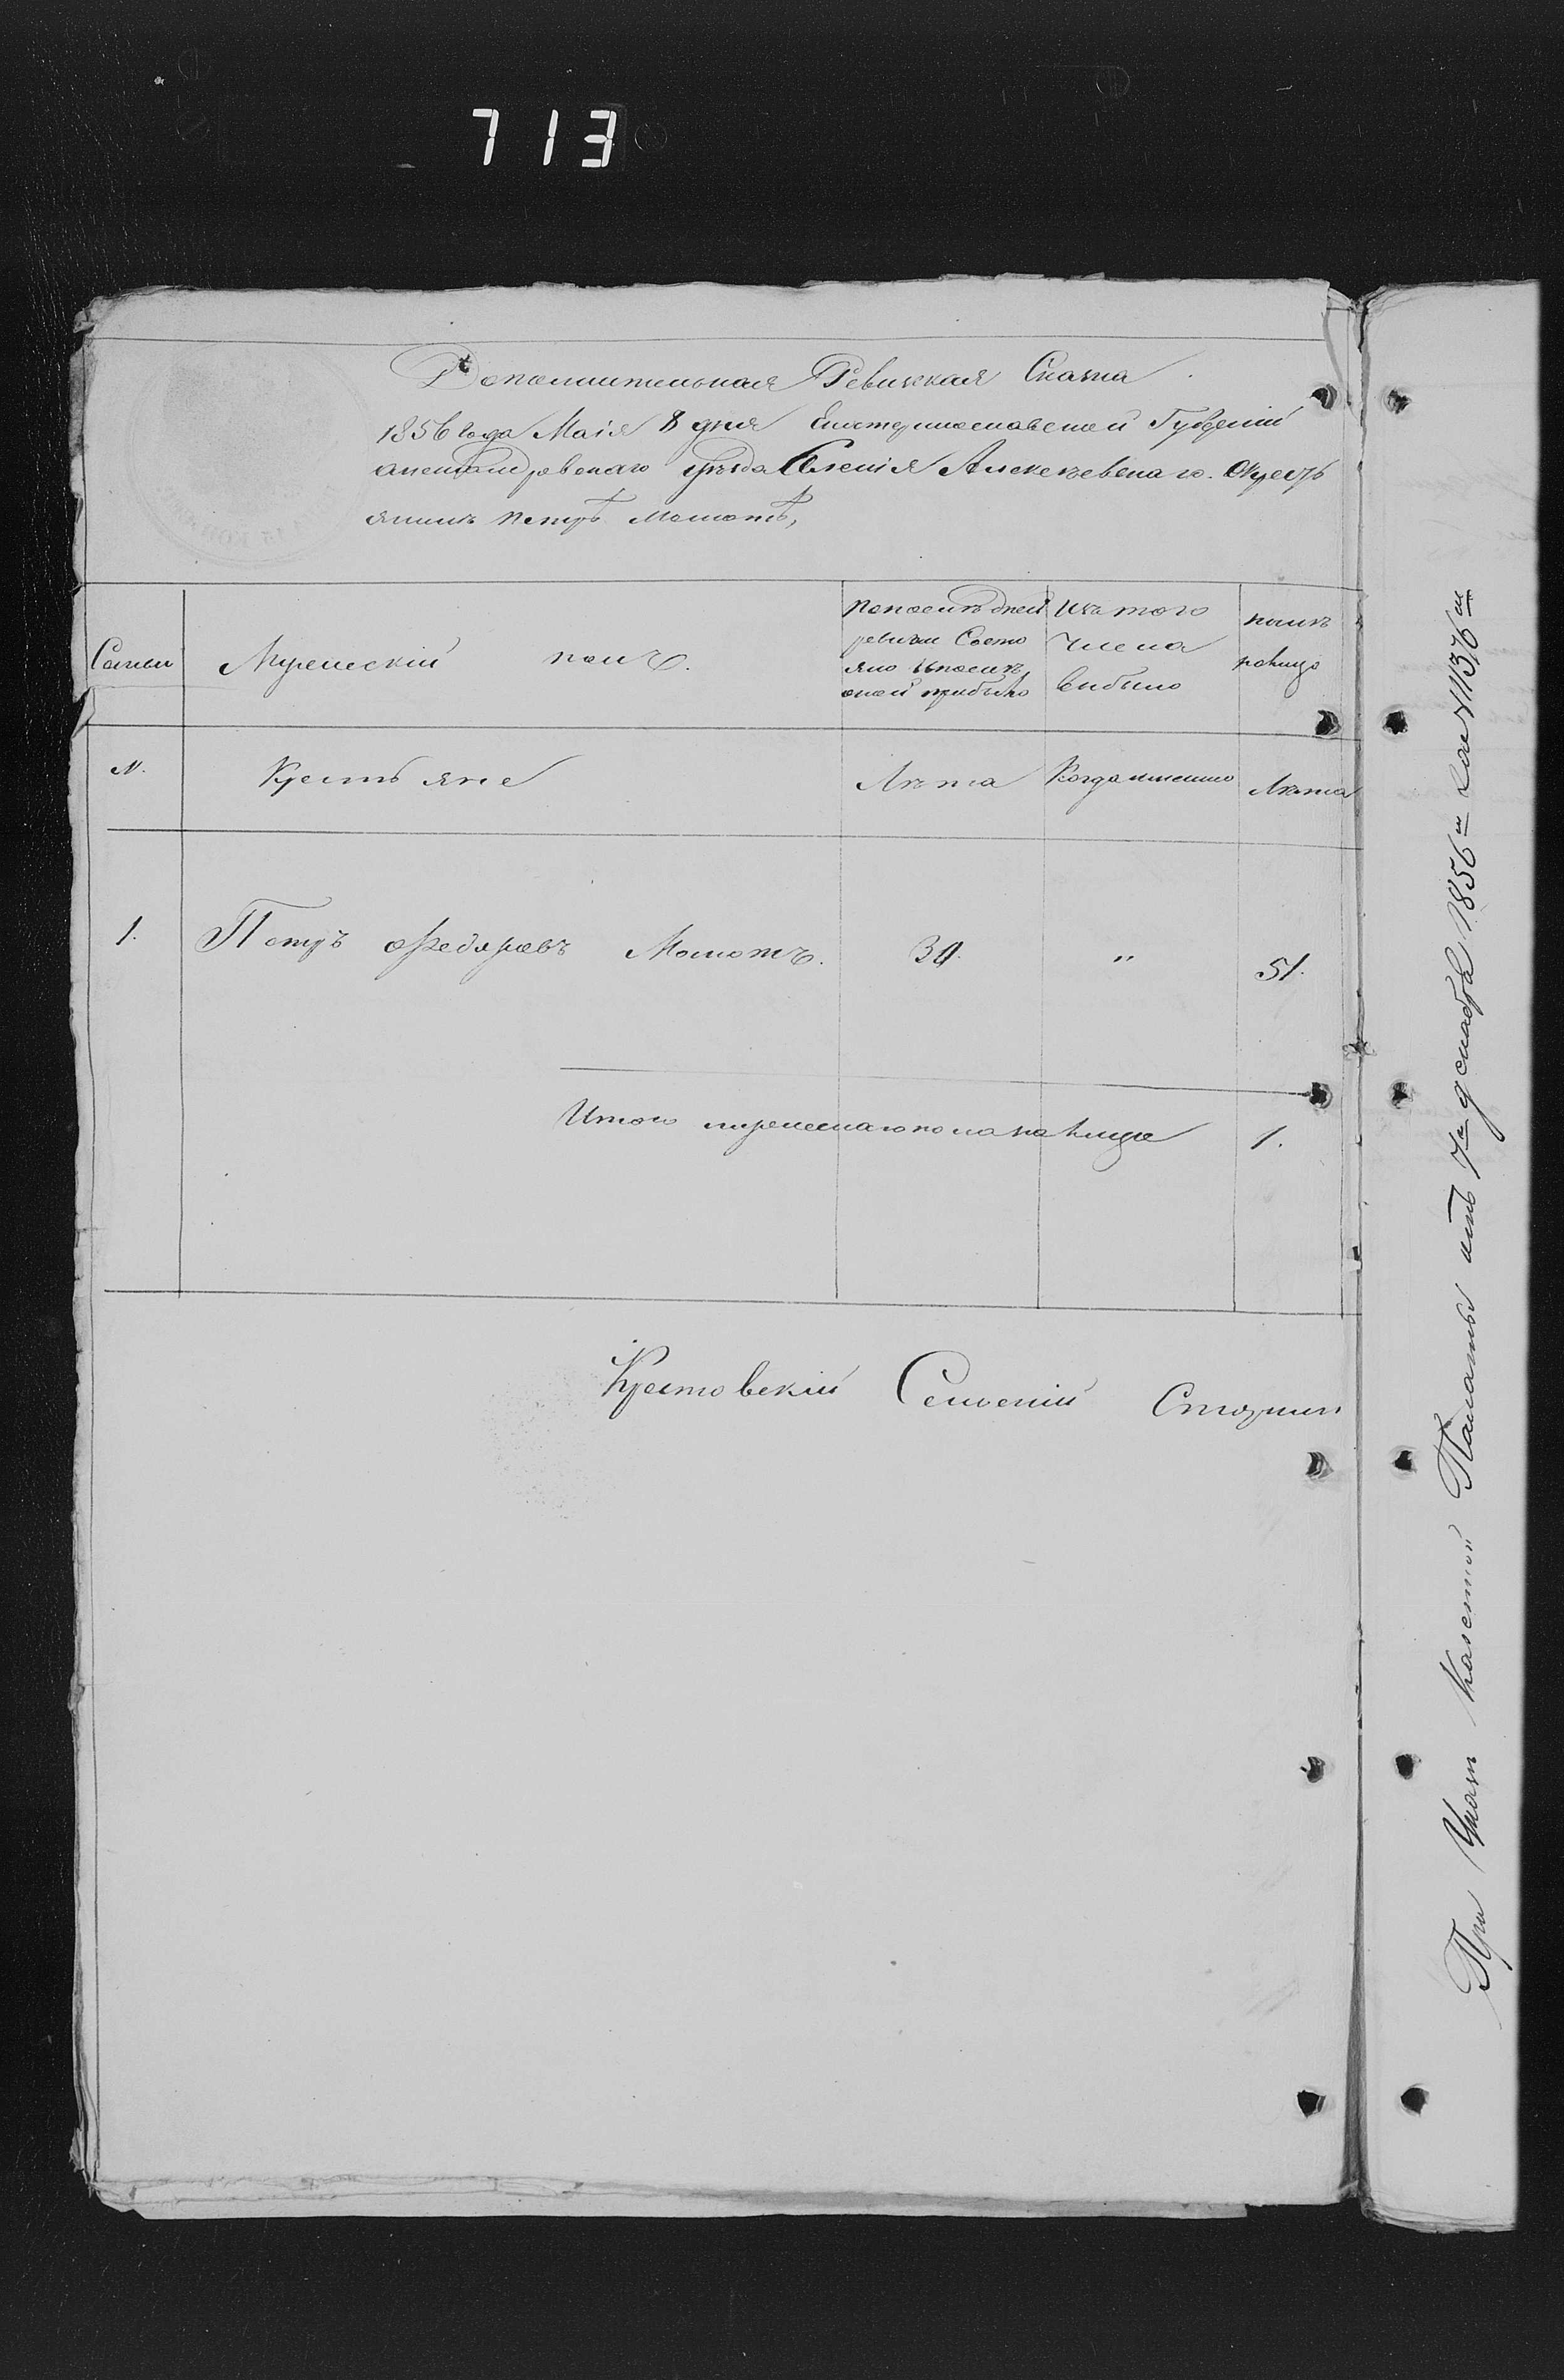 713
Дополнительная Ревизская Сказка.
1856 года Маія 8 дня Екатеринославской Губерніи
александровскаго уѣзда Селенія Алексѣевскаго. О крестья
янинѣ Петрѣ Момотѣ,
Семьи
Мужескій полъ.
По последней
ревизіи Состо
яло и после
оной прибыло
Изъ того
числа
выбыло
ныне
налицо
N.
Крестьяне
Лѣта
Когда именно
Лѣта
1.
Петръ Федоровъ Момотъ.
34.
"
51.
Итого мужескаго пола на лицо
1.
Крестовскій Сельскій Старшин
При Указѣ Казенной Палаты отъ 7го декабря 1856го за №11376м